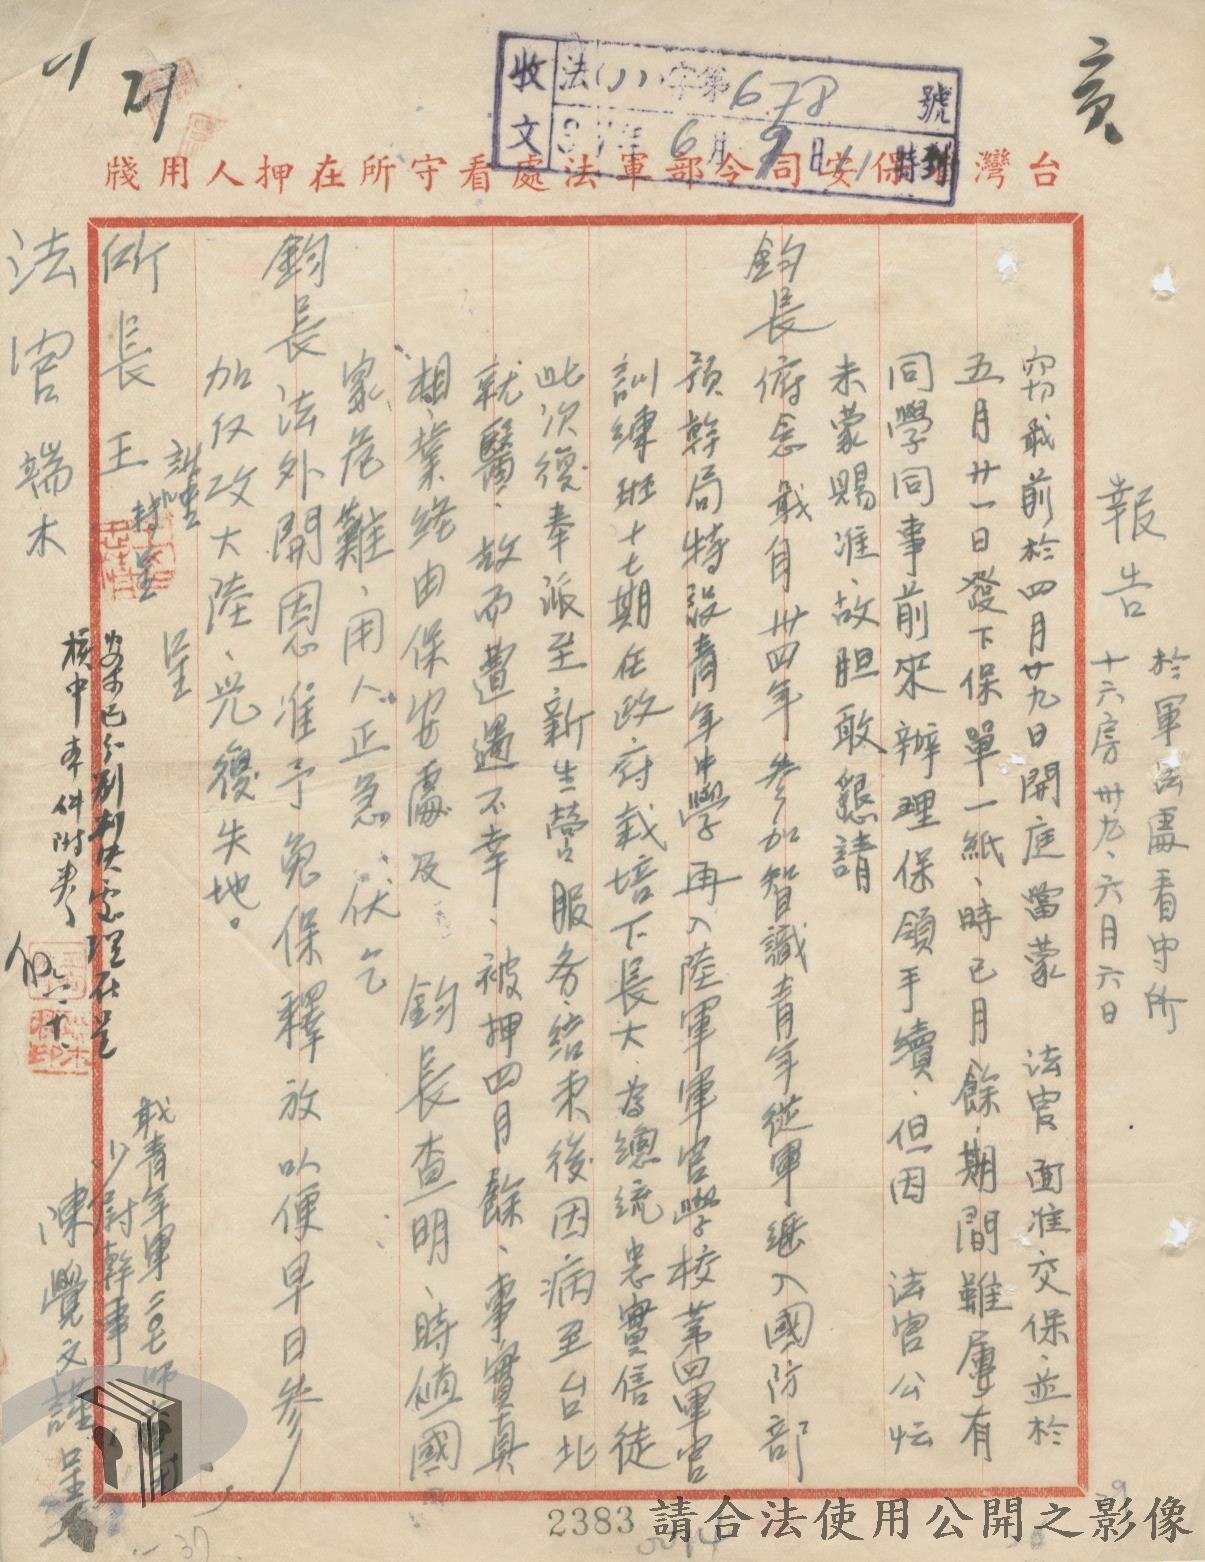 亥
收文 法(八)字第678號
39年6月9日11時到
台灣省保安司令部軍法處看守所在押人用牋
報告 於軍法處看守所
十六房 卅九、六月六日
竊職前於四月廿九日開庭當蒙 法官面准交保、並於
五月廿一日發下保單一紙、時已月餘、期間雖屢有
同學同事前來辦理保領手續、但因 法官公忙
未蒙賜准、故胆敢懇請
鈞長俯念職自卅四年參加智識青年從軍繼入國防部
預幹局特設青年中學再入陸軍軍官學校第四軍官
訓練班十七期在政府栽培下長大、為總統忠實信徒
此次復奉派至新生營服務、結束後因病至台北
就醫、故而遭遇不幸、被押四月餘、事實真
相、業經由保安處及 鈞長查明、時值國
家危難、用人正急、伏乞
鈞長法外開恩准予免保釋放以便早日參
加反攻大陸、光復失地。
謹呈
所長王 轉呈
法官端木
職青年軍二〇七師
少尉幹事
陳覺文謹呈
2383
請合法使用公開之影像